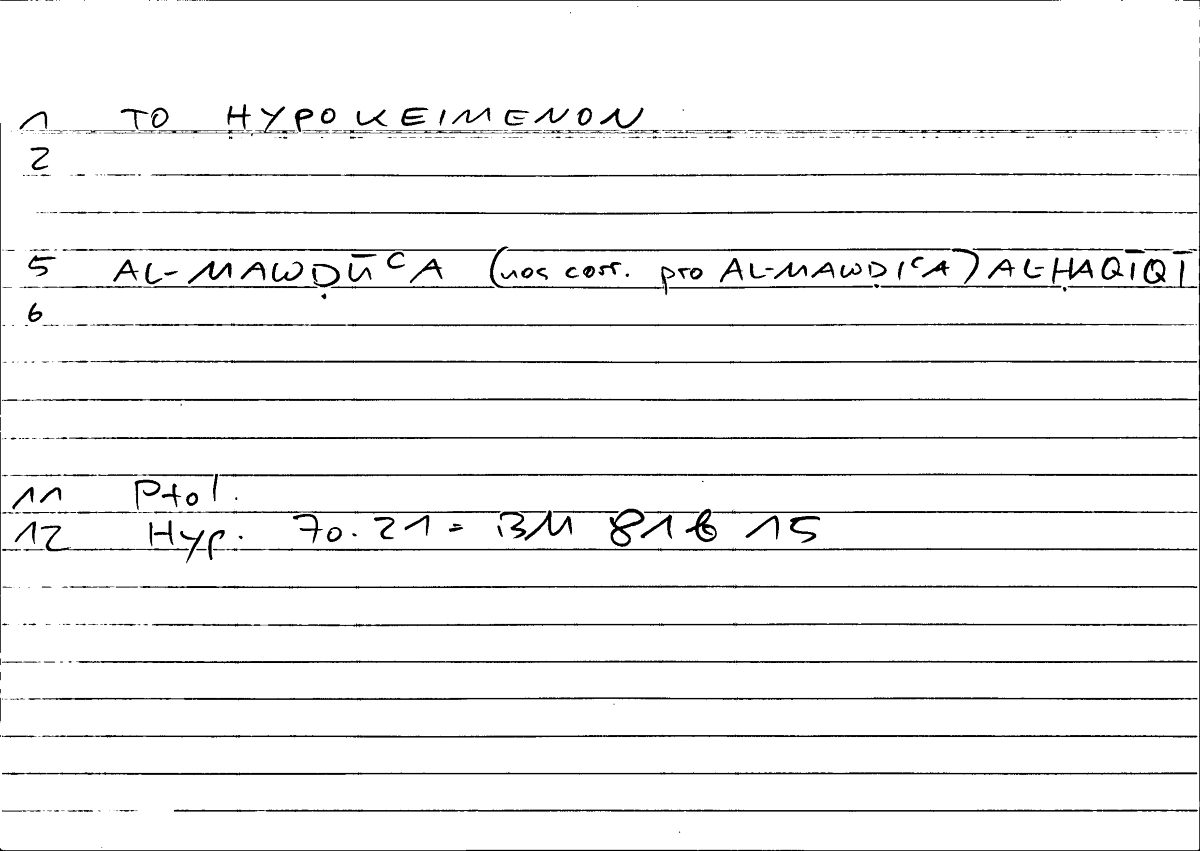 1 TO HYPOKEIMENON
2
5 AL-MAWḌŪʿA (nos corr. pro AL-MAWḌIʿA) AL-ḤAQĪQĪ
6
11 Ptol.
12 Hyp. 70.21 = BM 81b 15